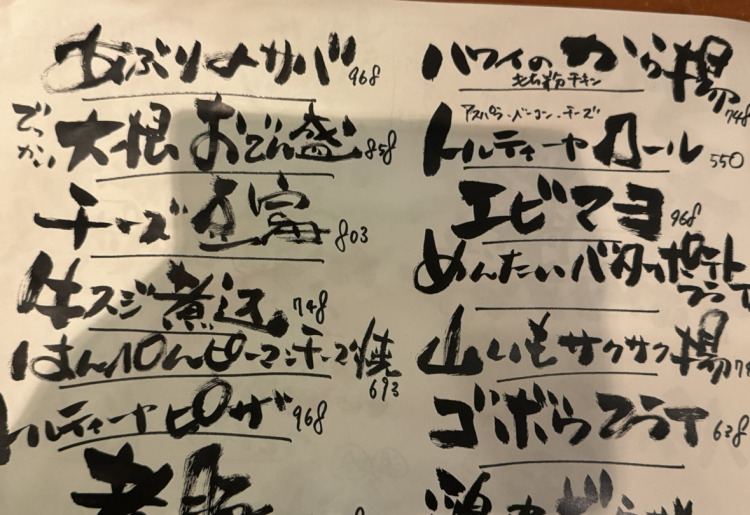 あぶり〆サバ 968
でっかい大根おでん盛 858
チーズ豆富 803
牛スジ煮込 748
はんぺんピーマンチーズ焼 693
トルティーヤピザ 968
ハワイのから揚 748
チキン
アスパラ・ベーコン・チーズ
トルティーヤロール 550
エビマヨ 968
めんたいバターポテトフライ
山いもサクサク揚
ゴボウフライ 638